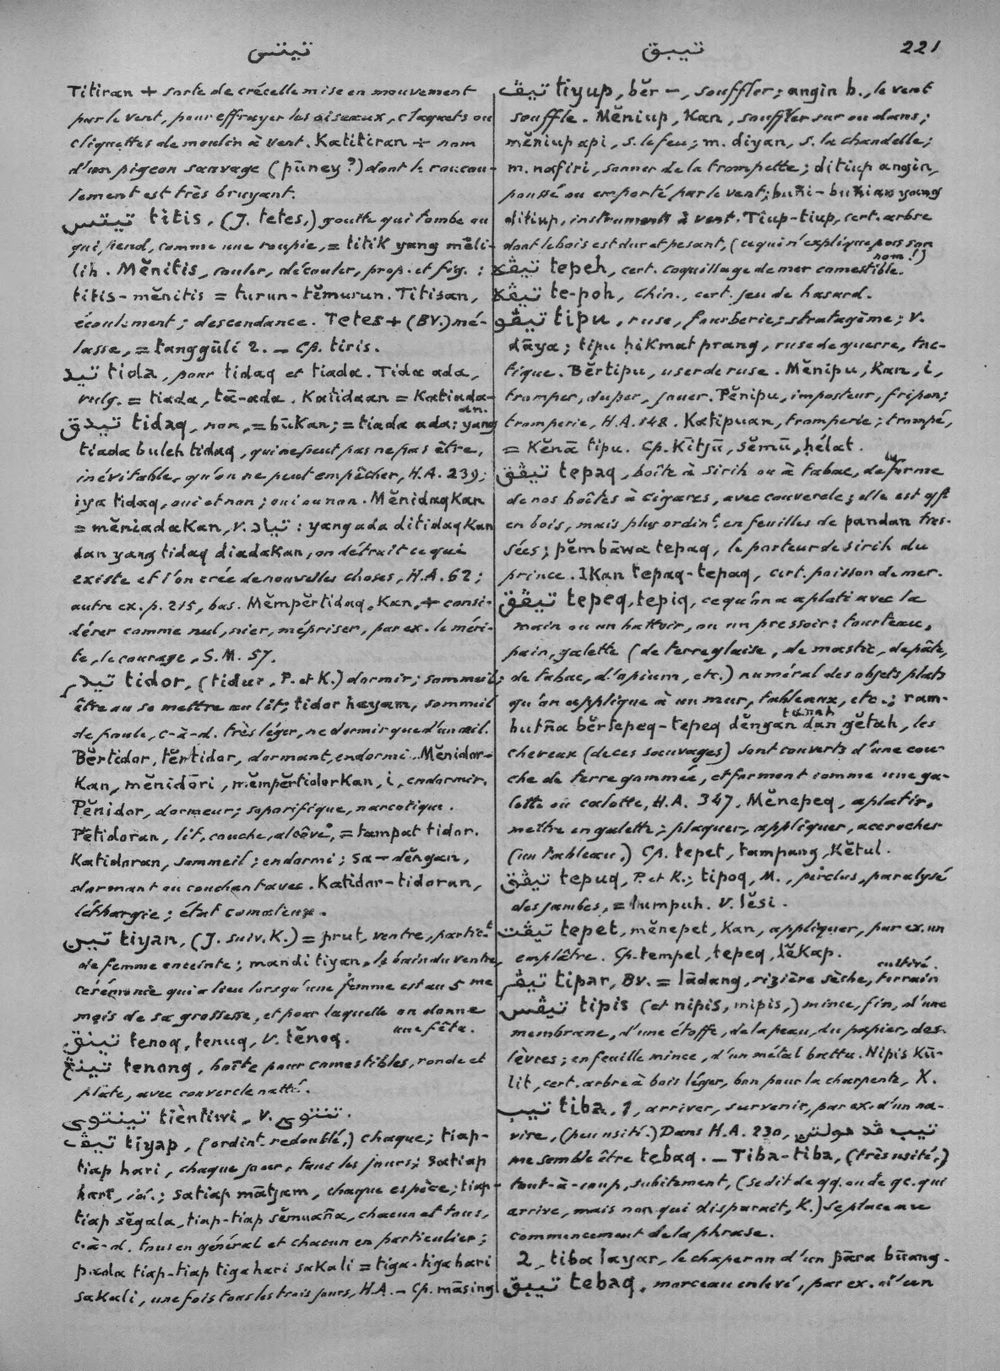 تيتسى
تيبق
221
Titiran + sorte de crécelle mise en mouvement
par le vent, pour effrayer les oiseaux, claquets ou
cliquettes de moulin à vent. Katitiran + nom
d'un pigeon sauvage (pūney?) dont le roucou-
lement est très bruyant.
تيتس titis, (J. tetes,) goutte qui tombe ou
qui pend, comme une roupie, = titik yang mĕli-
lih. Mĕnitis, couler, découler, prop. et fig. ;
titis-mĕnitis = turun-tĕmurun. Titisan,
écoulement; descendance. Tetes + (BV.) mé-
lasse, = tanggūli 2. — Cp. tiris.
تيد tida, pour tidaq et tiada. Tida ada,
vulg. = tiada, tā-ada. Katidaan = Katiada-
an.
تيدق tidaq, non, = būkan; = tiada ada: yang
tiada buleh tidaq, qui ne peut pas ne pas être,
inévitable, qu'on ne peut empêcher, H.A. 239;
iya tidaq, oui et non; oui ou non. Mĕnidaqkan
= mĕniadakan, v. تياد : yang ada ditidaqkan
dan yang tidaq diadakan, on détruit ce qui
existe et l'on crée de nouvelles choses, H.A. 62;
autre ex. p. 215, bas. Mĕmpĕrtidaq, kan, + consi-
dérer comme nul, nier, mépriser, par ex. le méri-
te, le courage, S.M. 57.
تيدر tidor, (tidur, P. et K.) dormir; sommeil;
être au se mettre au lit; tidor hayam, sommeil
de poule, c-à-d. très léger, ne dormir que d'un œil.
Bĕrtidor, tĕrtidor, dormant, endormi. Mĕnidor-
kan, mĕnidōri, mĕmpĕrtidorkan, i, endormir.
Pĕnidor, dormeur; soporifique, narcotique.
Pĕtidoran, lit, couche, alcôve, = tampat tidor.
Katidoran, sommeil; endormi; sa-dĕngan,
dormant ou couchant avec. Katidor-tidoran,
léthargie; état comateux.
تين tiyan, (J. suiv. K.) = prut, ventre, particᵗ
de femme enceinte; mandi tiyan, le bain du ventre,
cérémonie qui a lieu lorsqu'une femme est au 5 me
mois de sa grossesse, et pour laquelle on donne
une fête.
تينق tenoq, tenuq, v. tĕnoq.
تينڠ tenong, boîte pour comestibles, ronde et
plate, avec couvercle natté.
تينتوى tièntiwi, v. تنتوى.
تيڤ tiyap, (ordinᵗ redoublé,) chaque; tiap-
tiap hari, chaque jour, tous les jours; satiap
hari, id.; satiap mātjam, chaque espèce; tiap-
tiap sĕgala, tiap-tiap sĕmuaña, chacun et tous,
c.-à-d. tous en général et chacun en particulier;
pada tiap-tiap tiga hari sakali = tiga-tiga hari
sakali, une fois tous les trois jours, H.A. — Cp. māsing
تيڤ tiyup, bĕr —, souffler; angin b., le vent
souffle. Mĕniup, kan, souffler sur ou dans;
mĕniup api, s. le feu; m. diyan, s. la chandelle;
m. nafiri, sonner de la trompette; ditiup angin,
poussé ou emporté par le vent; buñi-buñian yang
ditiup, instruments à vent. Tiup-tiup, cert. arbre
dont le bois est dur et pesant, (ce qui n'explique pas son
nom!)
تيڤه tepeh, cert. coquillage de mer comestible.
تيڤه te-poh, Chin., cert. jeu de hasard.
تيڤو tipu, ruse, fourberie; stratagème; v.
dāya; tipu ḥikmat prang, ruse de guerre, tac-
tique. Bĕrtipu, user de ruse. Mĕnipu, kan, i,
tromper, duper, jouer. Pĕnipu, imposteur, fripon;
tromperie, H.A. 148. Katipuan, tromperie; trompé,
= kĕnā tipu. Cp. Kitjū, sĕmū, hélat.
تيڤق tepaq, boîte à sirih ou à tabac, de la forme
de nos boîtes à cigares, avec couvercle; elle est qqf
en bois, mais plus ordinᵗ en feuilles de pandan tres-
sées; pĕmbāwa tepaq, le porteur de sirih du
prince. Ikan tepaq-tepaq, cert. poisson de mer.
تيڤق tepeq, tepiq, ce qu'on a aplati avec la
main ou un battoir, ou un pressoir: tourteau,
pain, galette (de terre glaise, de mastic, de pâte,
de tabac, d'opium, etc.) numéral des objets plats
qu'on applique à un mur, tableaux, etc.; ram-
butña bĕrtepeq-tepeq dĕngan tānah dan gĕtah, les
cheveux (de ces sauvages) sont couverts d'une cou-
che de terre gommée, et forment comme une ga-
lotte ou calotte, H.A. 347. Mĕnepeq, aplatir,
mettre en galette; plaquer, appliquer, accrocher
(un tableau.) Cp. tepet, tampang, kĕtul.
تيڤق tepuq, P. et K.; tipoq, M., perclus, paralysé
des jambes, = lumpuh. V. lĕsi.
تيڤت tepet, mĕnepet, kan, appliquer, par ex. un
emplâtre. Cp. tempel, tepeq, lĕkap.
cultivé.
تيڤر tipar, BV. = lādang, rizière sèche, terrain
تيڤس tipis (et nipis, mipis,) mince, fin, d'une
membrane, d'une étoffe, de la peau, du papier, des
lèvres; en feuille mince, d'un métal battu. Nipis kū-
lit, cert. arbre à bois léger, bon pour la charpente, K.
تيب tiba, 1, arriver, survenir, par ex. d'un na-
vire, (peu usité.) Dans H.A. 230, تيب ڤد هولتن
me semble être tebaq. — Tiba-tiba, (très usité,)
tout-à-coup, subitement, (se dit de qq. ou de qc. qui
arrive, mais non qui disparaît, K.) se place au
commencement de la phrase.
2, tiba layar, le chaperon d'un pāra būang.
تيبق tebaq, morceau enlevé, par ex. d'un